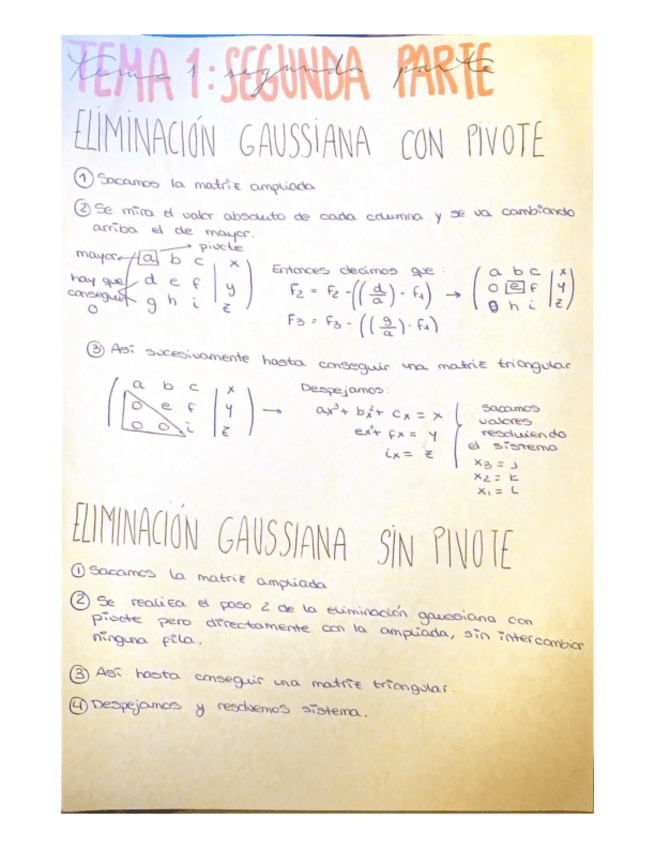 TEMA 1: SEGUNDA PARTE
Tema 1 segunda parte
ELIMINACIÓN GAUSSIANA CON PIVOTE
① Sacamos la matriz ampliada
② Se mira el valor absoluto de cada columna y se va cambiando
arriba el de mayor.
mayor → pivote
hay que conseguir 0
( a b c | x )
( d e f | y )
( g h i | z )
Entonces decimos que:
F₂ = F₂ - ((d/a) · F₁) →
F₃ = F₃ - ((g/a) · F₁)
( a b c | x )
( 0 e f | y )
( 0 h i | z )
③ Así sucesivamente hasta conseguir una matriz triangular
( a b c | x )
( 0 e f | y )
( 0 0 i | z )
→
Despejamos:
ax³ + bx² + cx = x
ex² + fx = y
ix = z
sacamos
valores
resolviendo
el sistema
x₃ = j
x₂ = k
x₁ = L
ELIMINACIÓN GAUSSIANA SIN PIVOTE
① Sacamos la matriz ampliada
② Se realiza el paso 2 de la eliminación gaussiana con
pivote pero directamente con la ampliada, sin intercambiar
ninguna fila.
③ Así hasta conseguir una matriz triangular.
④ Despejamos y resolvemos sistema.